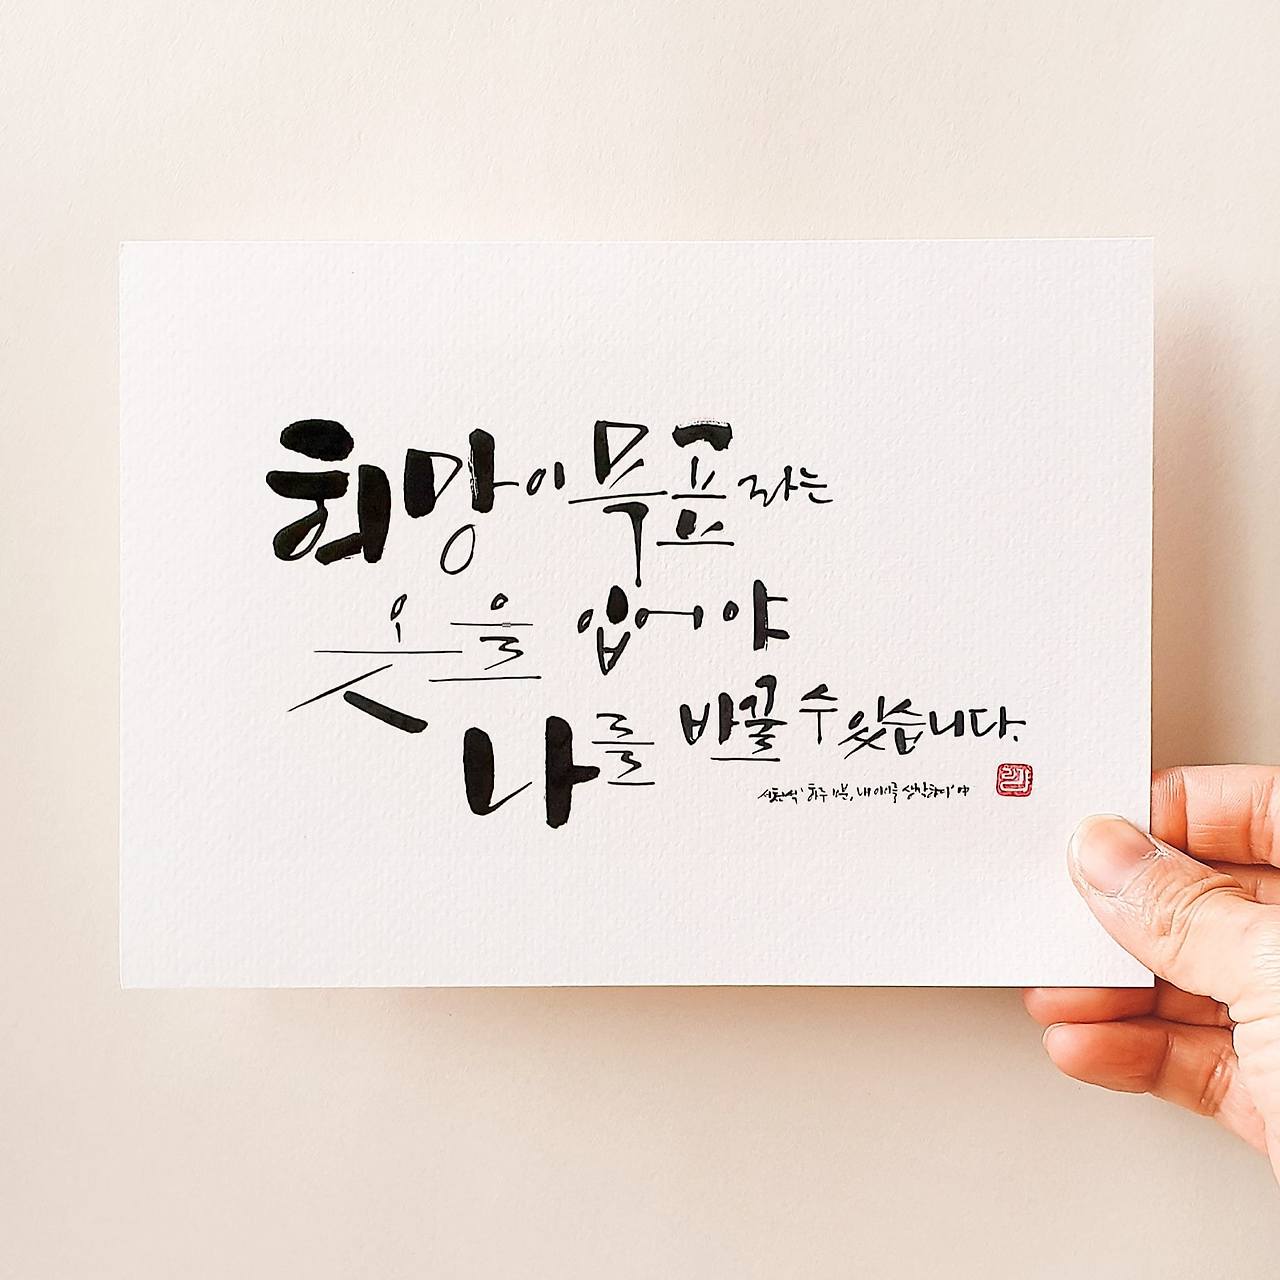 희망이 목표라는
옷을 입어야
나를 바꿀 수 있습니다.
서천석 '하루 10분, 내 아이를 생각하다' 中